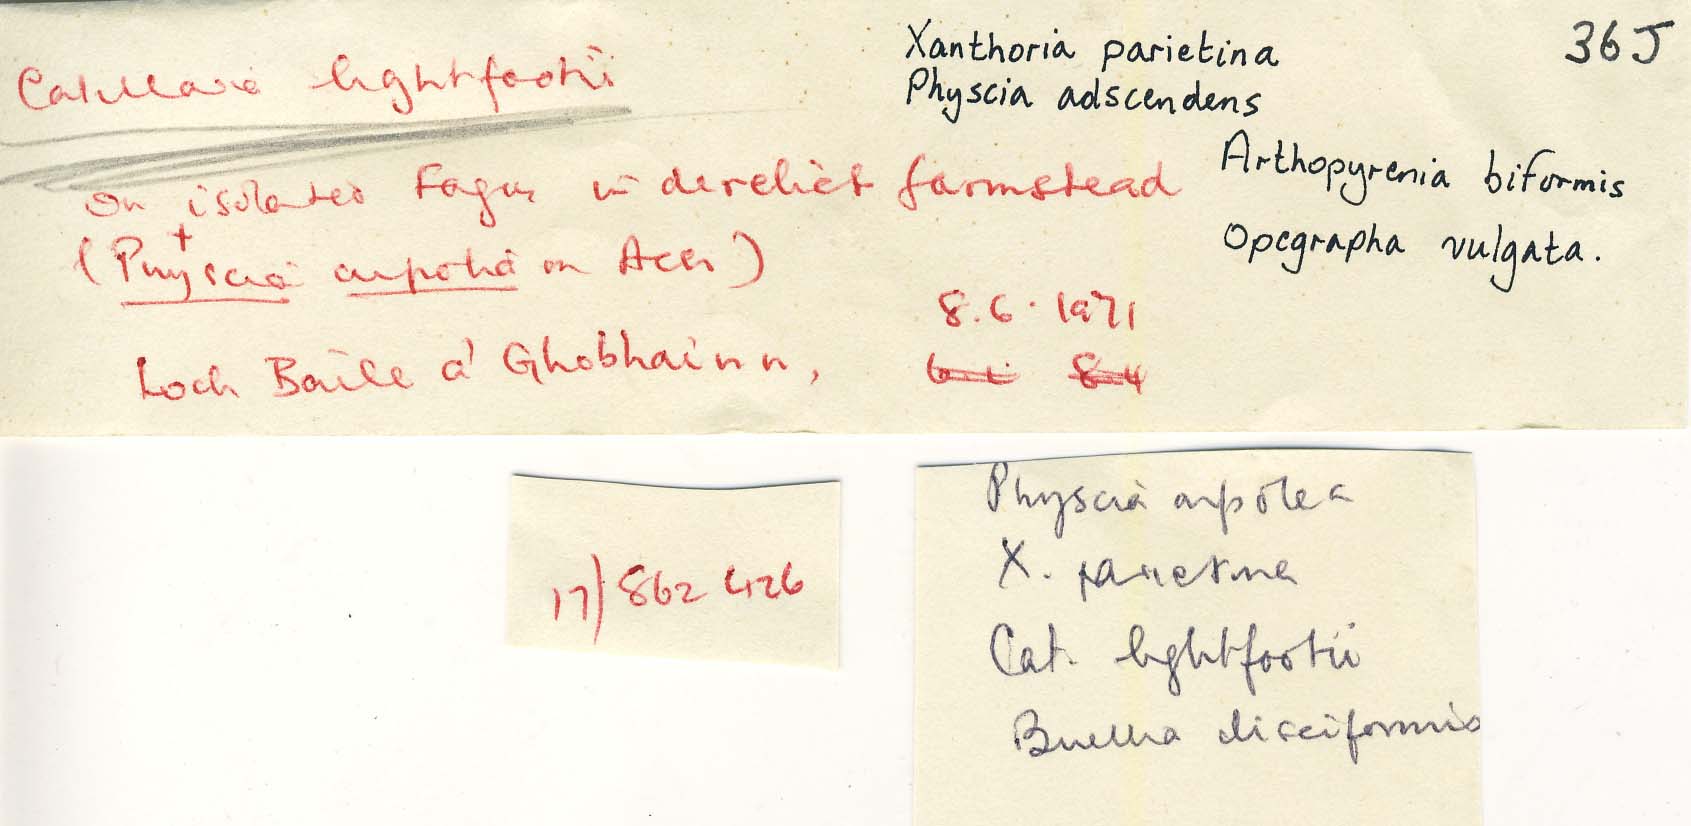 Catillaria lightfootii
Xanthoria parietina
Physcia adscendens
36J
Arthopyrenia biformis
Opegrapha vulgata.
on isolated Fagus in derelict farmstead
(Physcia aipolia on Acer)
+
8.6.1971
Loch Baile a' Ghobhainn,
17/862 426
Physcia aipolea
X. parietina
Cat. lightfootii
Buellia disciformis